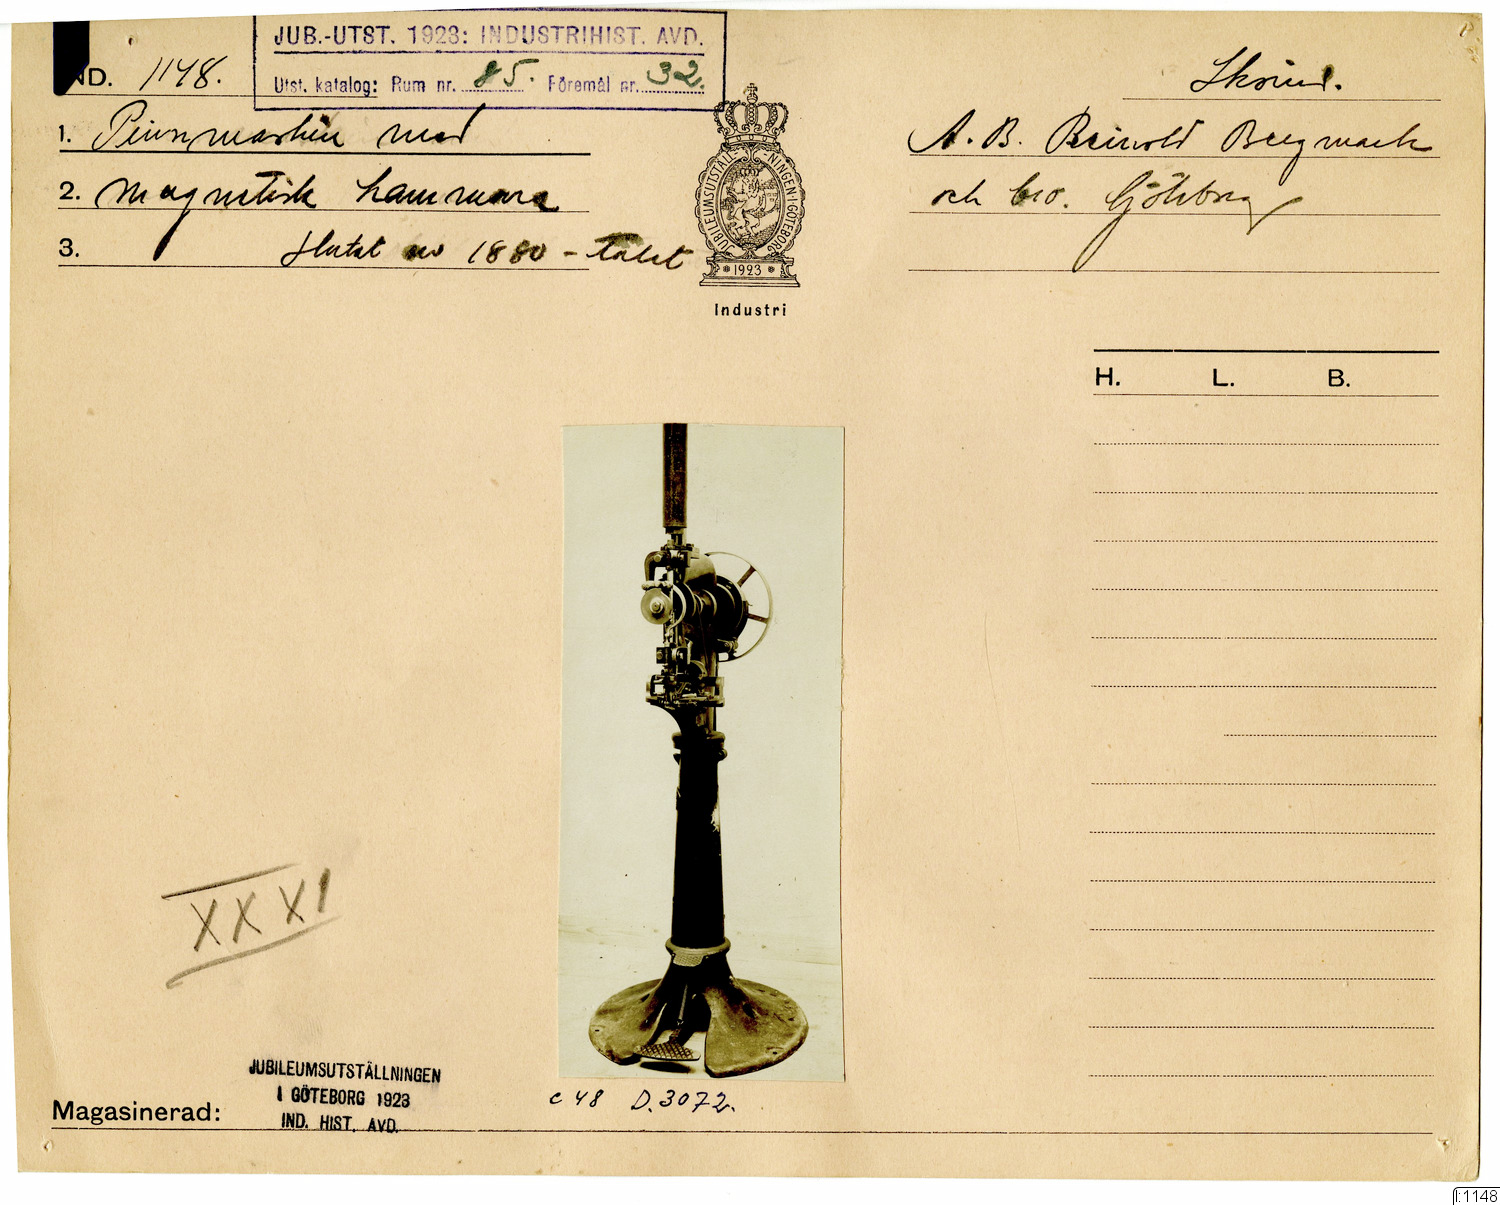 JUB.-UTST. 1923: INDUSTRIHIST. AVD.
IND. 1148.
Utst. katalog: Rum nr. 85. Föremål nr. 32.
Skoind.
1. Pinnmaskin med
2. magnetisk hammare
3. Slutet av 1880-talet
A. B. Reinold Bergmark
och Co. Göteborg
JUBILEUMSUTSTÄLLNINGEN I GÖTEBORG
1923
Industri
H. L. B.
XXXI
JUBILEUMSUTSTÄLLNINGEN
I GÖTEBORG 1923
IND. HIST. AVD.
Magasinerad:
c 48 D.3072.
I:1148